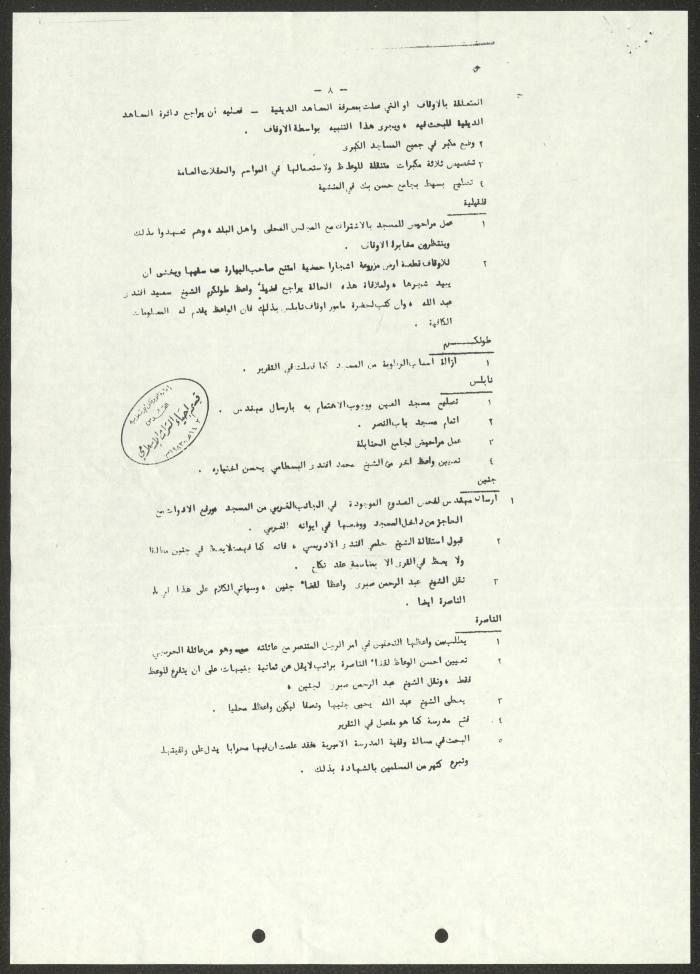 - ٨ -
المتعلقة بالاوقاف او التي عملت بمعرفة المعاهد الدينية - فعليه أن يراجع دائرة المعاهد
الدينية للبحث فيه ، ويجرى هذا التنبيه بواسطة الاوقاف .
٢ وضع مكبر في جميع المساجد الكبرى
٣ تخصيص ثلاثة مكبرات متنقلة للوعظ ولاستعمالها في المواسم والحفلات العامة
٤ تصليح بسيط بجامع حسن بك في المنشية
قلقيلية
١ عمل مراحيض للمسجد بالاشتراك مع المجلس المحلى واهل البلد ، وهم تعهدوا بذلك
وينتظرون مخابرة الاوقاف .
٢ للاوقاف قطعة ارض مزروعة اشجارا حمضية امتنع صاحب البيارة عن سقيها ويخشى ان
يبيد شجرها ، ولملاقاة هذه الحالة يراجع فضيلة واعظ طولكرم الشيخ سعيد افندى
عبد الله ، وان كتب لحضرة مامور اوقاف نابلس بذلك فان الواعظ يقدم له المعلومات
الكافية .
طولكرم
١ ازالة اسباب الرطوبة من المسجد كما فصلت في التقرير .
نابلس
١ تصليح مسجد العين ووجوب الاهتمام به بارسال مهندس .
٢ اتمام مسجد باب النصر .
٣ عمل مراحيض لجامع الحنابلة
٤ تعيين واعظ اخر من الشيخ محمد افندى البسطامي يحسن اختياره .
جنين
١ ارسال مهندس لفحص الصدوع الموجودة في الجانب الغربي من المسجد ورفع الادوات مع
الحاجز من داخل المسجد ووضعها في ايوانه الغربي .
٢ قبول استقالة الشيخ حلمي افندى الادريسي ، فانه كما فهمت لا يعظ في جنين مطلقا
ولا يعظ في القرى الا بمناسبة عقد نكاح .
٣ نقل الشيخ عبد الرحمن صبرى واعظا لقضاء جنين ، وسياتي الكلام على هذا في
الناصرة ايضا .
الناصرة
١ يطلب من واعظها التحقيق في امر الرجل المتنصر من عائلته وهو من عائلة
٢ تعيين احسن الوعاظ لقضاء الناصرة براتب لا يقل عن ثمانية جنيهات على ان يتفرغ للوعظ
فقط ، ونقل الشيخ عبد الرحمن صبرى لجنين .
٣ يعطى الشيخ عبد الله يحيى جنيها ونصفا ليكون واعظا محليا .
٤ فتح مدرسة كما هو مفصل في التقرير
٥ البحث في مسالة وقفية المدرسة الاميرية فقد علمت ان فيها محرابا يدل على وقفيتها
وتبرع كثير من المسلمين بالشهادة بذلك .
القدس
قسم إحياء التراث الإسلامي